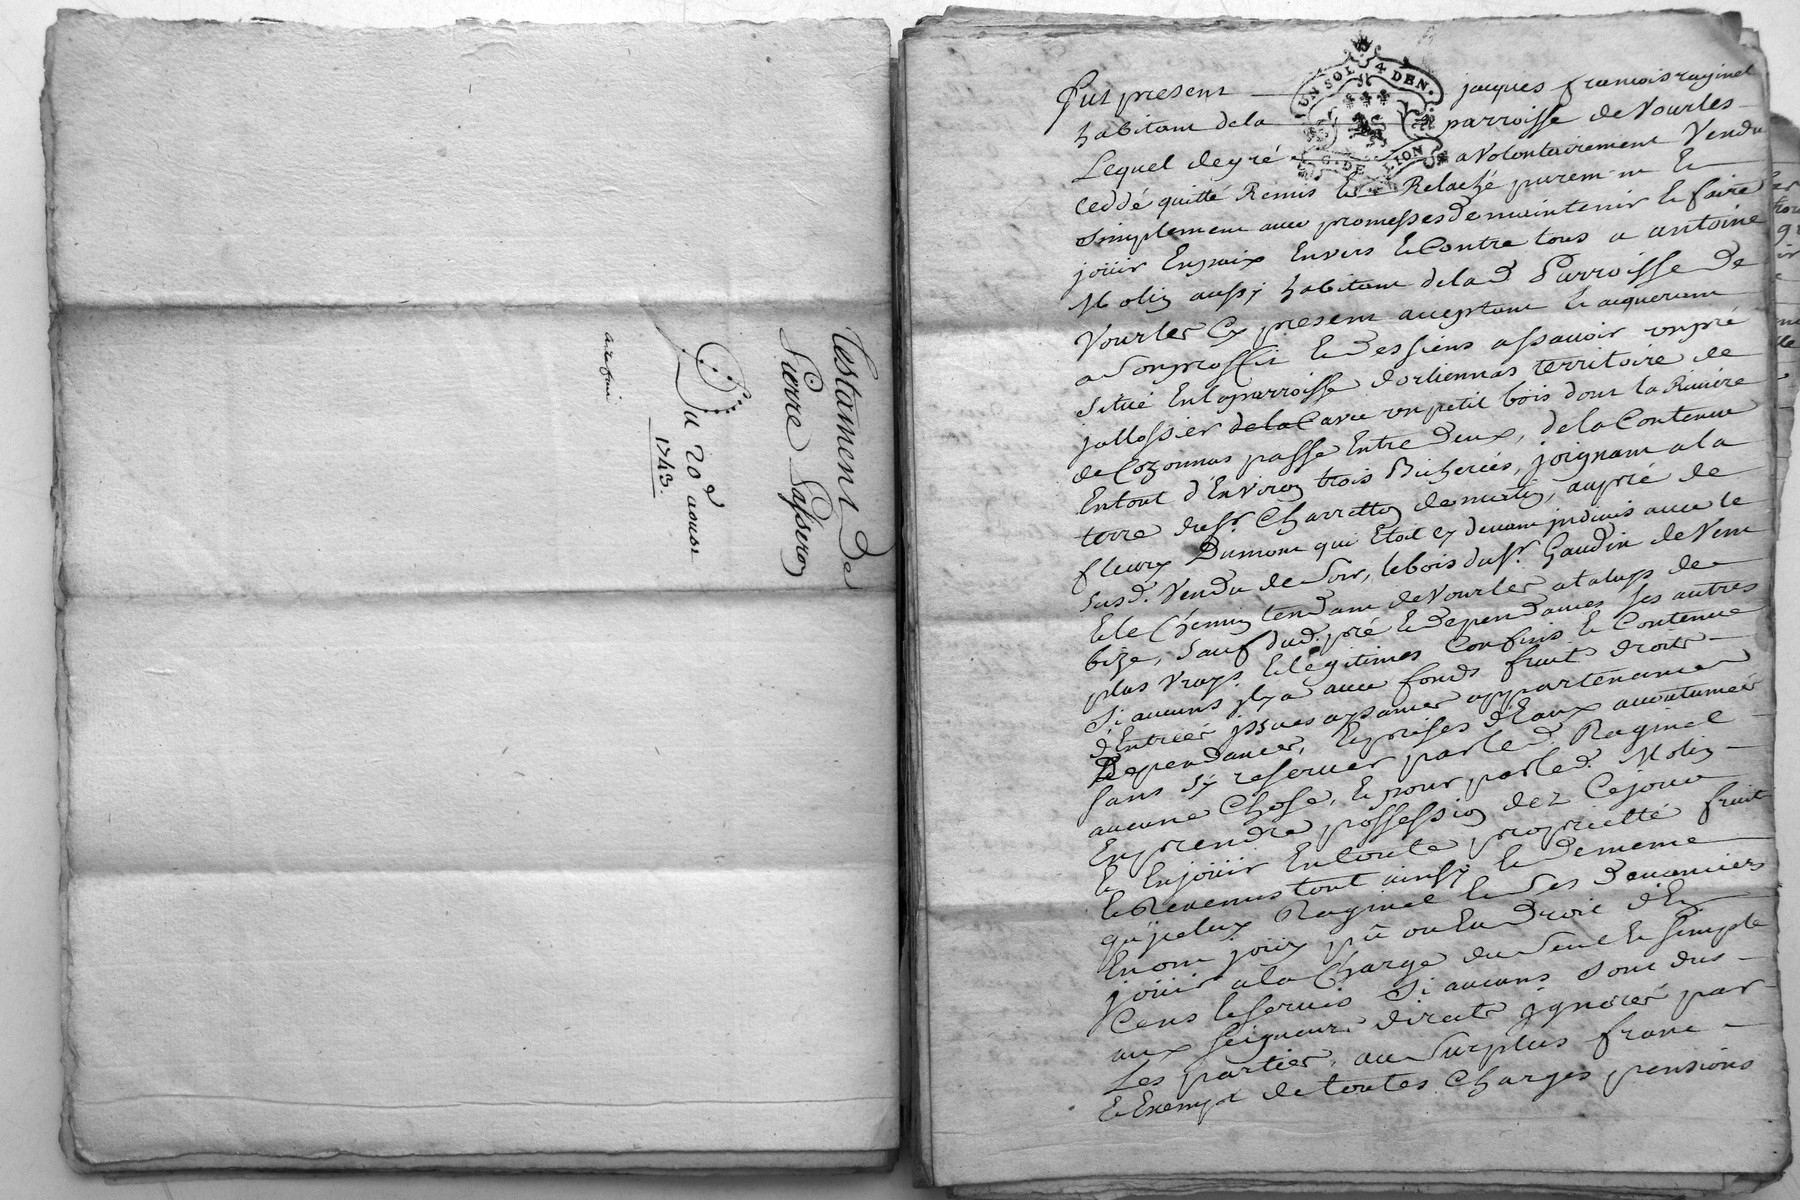 Testament de
Pierre
Du 20d aoust
1743.
UN SOL 4 DEN.
G. DE LION
Fut present jacques francois raginel
habitant dela parroisse de Vourles
Lequel degré a volontairement Vendu
ceddé quitté Remis et Relaché purem.nt Et
simplement avec promesses de maintenir Et faire
joüir En paix Envers Et Contre tous a antoine
Molin aussy habitant delad Parroisse de
Vourles Cy present acceptant Et acquerant
a son proffit Et des siens assavoir un pré
situé En la parroisse d'orliennas territoire de
jallossier de la Cavu un petit bois dont la Riviere
de Cozonnas passe Entre deux, de la Contenue
En tout d'Environ trois Bicherées, joignant a la
terre du sr. Charretton de matin, au pré de
fleury Dumont qui Etoit cy devant indivis avec le
susd. Vendu de soir, le bois du sr. Gaudin de Vent
Et le Chemin tendant de Vourles a taluys de
bize, sauf dud. pré Et dependances ses autres
plus vrays Et légitimes Confins Et Contenue
Si aucuns il y a avec fonds fruit droits
d'Entrées issues aysances appartenances
Dependances, Et prises d'Eaux accoutumées
sans s'y reserver par led. Raginel
aucune Chose, Et pour par led. Molin
En prendre possession dez Ce jour
Et En joüir En toute proprietté fruit
Et Revenus tout ainsy Et de meme
qu'iceluy Raginel Et ses devanciers
En ont joüy pû ou Eu droit d'En
joüir a la Charge du seul Et simple
Cens Et servis si aucuns sont dus
aux seigneurs directs ignorés par
Les parties, au surplus franc
Et Exempt de toutes Charges pensions